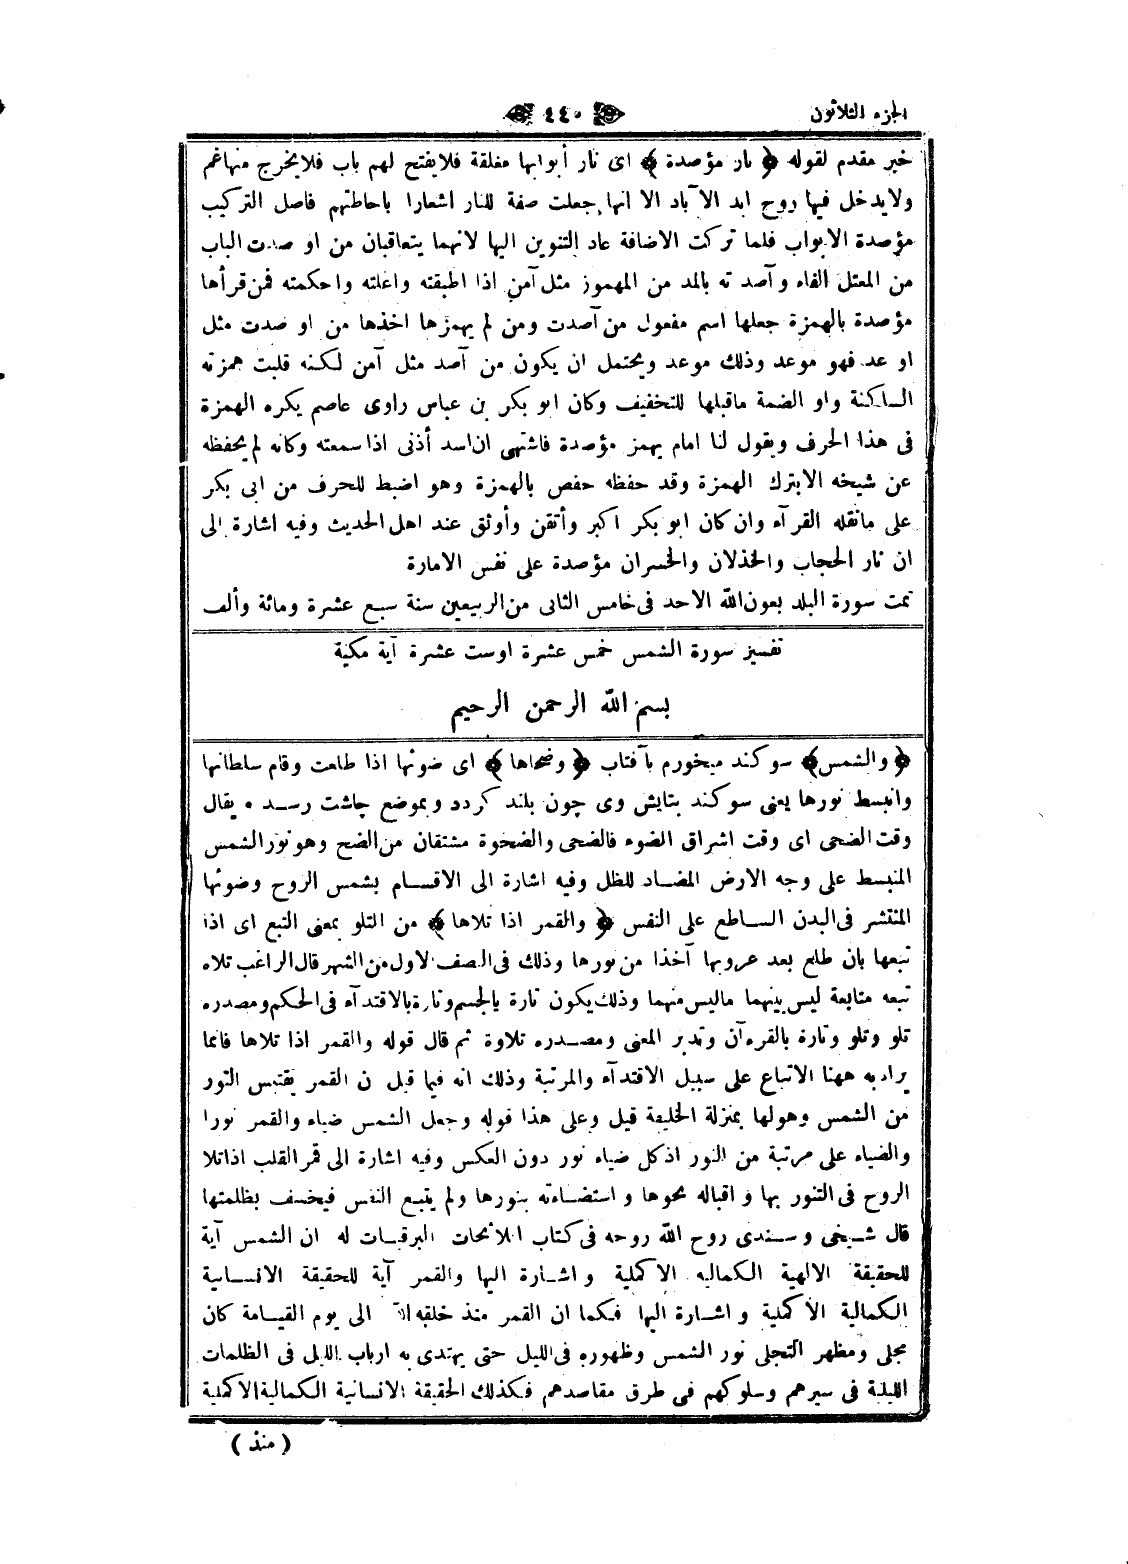 الجزء الثلاثون
٤٤٠
خبر مقدم لقوله ﴿ نار مؤصدة ﴾ اى نار أبوابها مغلقة فلايفتح لهم باب فلايخرج منهاغم
ولايدخل فيها روح ابد الآباد الا انها جعلت صفة للنار اشعارا باحاطتهم فاصل التركيب
مؤصدة الابواب فلما تركت الاضافة عاد التنوين اليها لانهما يتعاقبان من او صدت الباب
من المعتل الفاء وآصد ته بالمد من المهموز مثل آمن اذا اطبقته واغلته واحكمته فمن قرأها
مؤصدة بالهمزة جعلها اسم مفعول من آصدت ومن لم يهمزها اخذها من او صدت مثل
او عد فهو موعد وذلك موعد ويحتمل ان يكون من آصد مثل آمن لكنه قلبت همزته
الساكنة واو الضمة ماقبلها للتخفيف وكان ابو بكر بن عباس راوى عاصم يكره الهمزة
فى هذا الحرف ويقول لنا امام يهمز مؤصدة فاشتهى ان اسد أذنى اذا سمعته وكانه لم يحفظه
عن شيخه الابترك الهمزة وقد حفظه حفص بالهمزة وهو اضبط للحرف من ابى بكر
على مانقله القرآء وان كان ابو بكر اكبر وأتقن وأوثق عند اهل الحديث وفيه اشارة الى
ان نار الحجاب والخذلان والخسران مؤصدة على نفس الامارة
تمت سورة البلد بعون الله الاحد فى خامس الثانى من الربيعين سنة سبع عشرة ومائة وألف
تفسير سورة الشمس خمس عشرة اوست عشرة آية مكية
بسم الله الرحمن الرحيم
﴿ والشمس ﴾ سوكند ميخورم بآفتاب ﴿ وضحاها ﴾ اى ضوئها اذا طلعت وقام سلطانها
وانبسط نورها يعنى سوكند بتابش وى چون بلند كردد وبموضع چاشت رسد • يقال
وقت الضحى اى وقت اشراق الضوء فالضحى والضحوة مشتقان من الضح وهو نور الشمس
المنبسط على وجه الارض المضاد للظل وفيه اشارة الى الاقسام بشمس الروح وضوئها
المنتشر فى البدن الساطع على النفس ﴿ والقمر اذا تلاها ﴾ من التلو بمعنى التبع اى اذا
تبعها بان طلع بعد غروبها آخذا من نورها وذلك فى النصف الاول من الشهر قال الراغب تلاه
تبعه متابعة ليس بينهما ماليس منهما وذلك يكون تارة بالجسم وتارة بالاقتدآء فى الحكم ومصدره
تلو وتلو وتارة بالقرءآن وتدبر المعنى ومصدره تلاوة ثم قال قوله والقمر اذا تلاها فانما
يراد به ههنا الاتباع على سبيل الاقتدآء والمرتبة وذلك انه فيما قبل ن القمر يقتبس النور
من الشمس وهولها بمنزلة الخليفة قيل وعلى هذا قوله وجعل الشمس ضياء والقمر نورا
والضياء على مرتبة من النور اذكل ضياء نور دون العكس وفيه اشارة الى قمر القلب اذاتلا
الروح فى التنور بها واقباله نحوها واستضاءته بنورها ولم يتبع النفس فيخسف بظلمتها
قال شيخى وسندى روح الله روحه فى كتاب اللائحات البرقيات له ان الشمس آية
للحقيقة الالهية الكماليه الاكملية واشارة اليها والقمر آية للحقيقة الانسانية
الكمالية الاكملية واشارة اليها فكما ان القمر منذ خلقه الله الى يوم القيامة كان
مجلى ومظهر التجلى نور الشمس وظهوره فى الليل حتى يهتدى به ارباب الليل فى الظلمات
الليلية فى سيرهم وسلوكهم فى طرق مقاصدهم فكذلك الحقيقة الانسانية الكمالية الاكملية
( منذ )